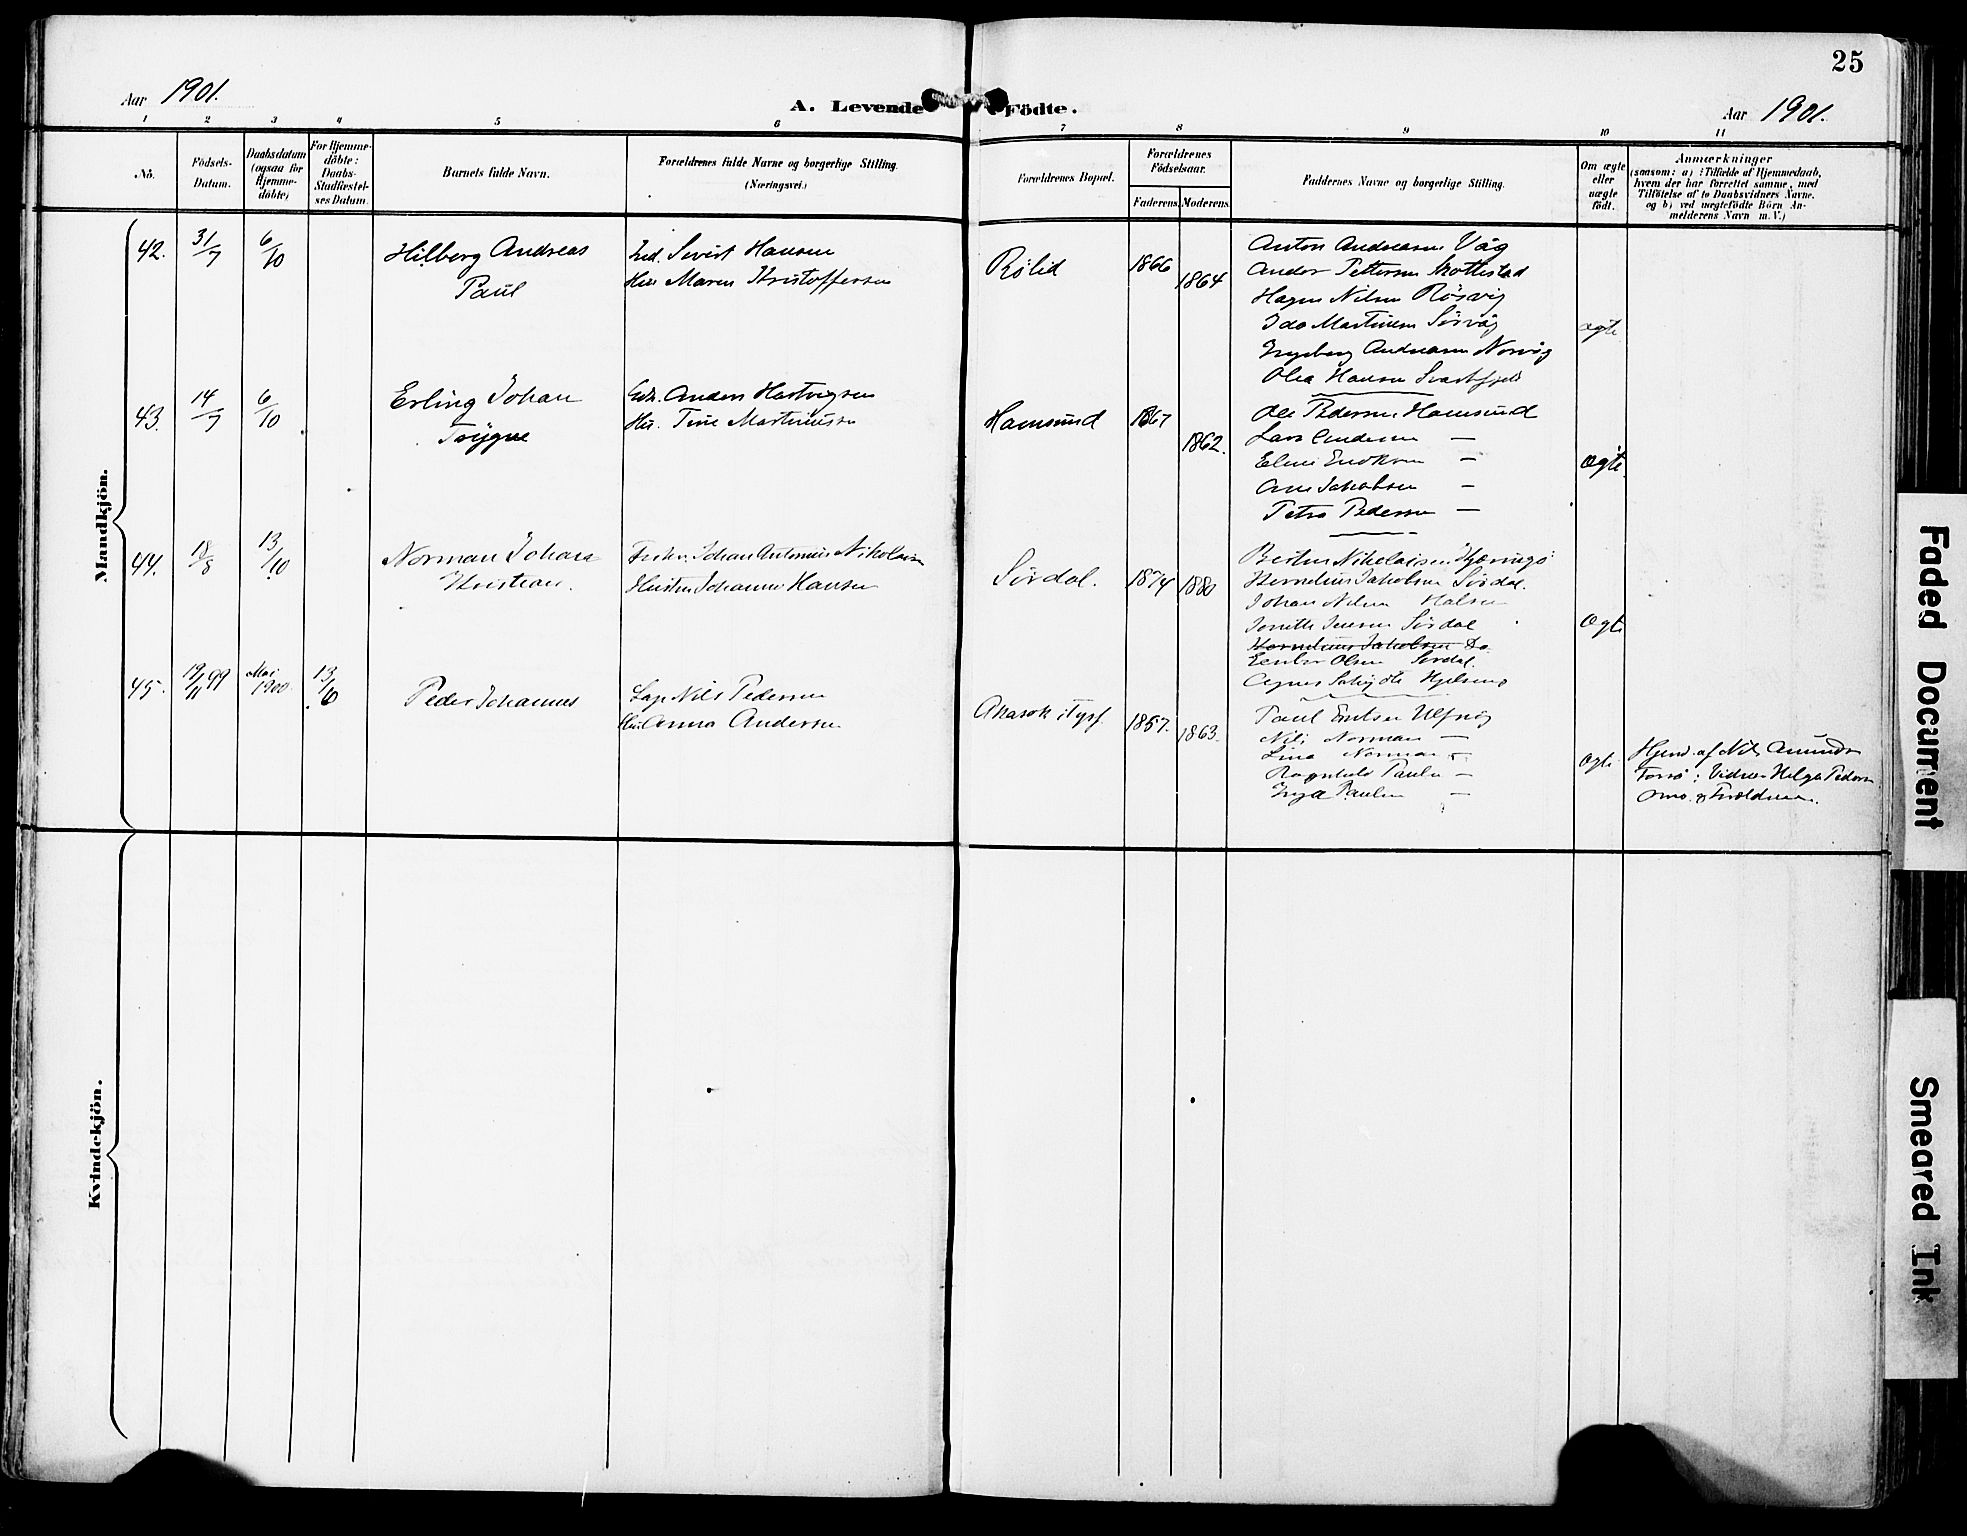 25
Aar 1901.
A. Levende Födte.
Aar 1901.
1 2 3 4 5 6 7 8 9 10 11
No.
Födsels-Datum.
Daabsdatum (ogsaa for Hjemme-döbte)
For Hjemme-döbte: Daabs-Stadfæstel-ses Datum.
Barnets fulde Navn.
Forældrenes fulde Navne og borgerlige Stilling. (Næringsvei.)
Forældrenes Bopæl.
Forældrenes Födselsaar.
Faderens Moderens
Faddernes Navne og borgerlige Stilling.
Om ægte eller uægte födt.
Anmærkninger
(saasom: a) i Tilfælde af Hjemmedaab,
hvem der har forrettet samme, med
Tilföielse af to Daabsvidners Navne,
og b) ved uægtefödte Börn An-
melderens Navn m. V.)
Mandkjön.
42. 31/7 6/10 Hilberg Andreas
Paul
Sivert Hansen
Maren Kristoffersen
Rölid 1866 1864
Anton Andreasen Våg
Ander Pettersen Skottestad
Hagen Nilsen Rösvig
Ida Martinsen Sörvåg
Ingeborg Andreasen
Olea Hansen
ægte
43. 14/7 6/10 Erling Johan
Trygve
Anders Hartvigsen
Hu. Tine Martinussen
Hamsund 1867 1862.
Ole Pedersen Hamsund
Lars Andersen —
Eline —
Ane Jakobsen —
Petra Pedersen —
Ægte
44. 18/8 13/10 Norman Johan
Kristian.
Johan Antonius Nikolaisen
Hustru Johanne Hansen
Sördal. 1874 1880
Nikolaisen
Kornelius Jakobsen Sördal.
Johan Nilsen
Jensen Sördal
Kornelius Jakobsen Do
Olsen Sördal.
Agnes
Ægte
45. 19/11 99 Mai 1900 13/10 Peder Johannes
Lap Nils Pedersen
Hu. Anna Andersen
Tysf. 1857. 1863.
Paul
Nils Norman —
Lina Norman —
Ragnhild Paulsen —
Inga Paulsen —
Ægte
Hjemd. af Nils
: Vidner Helga Pedersen
Kvindekjön.
Faded Document
Smeared Ink